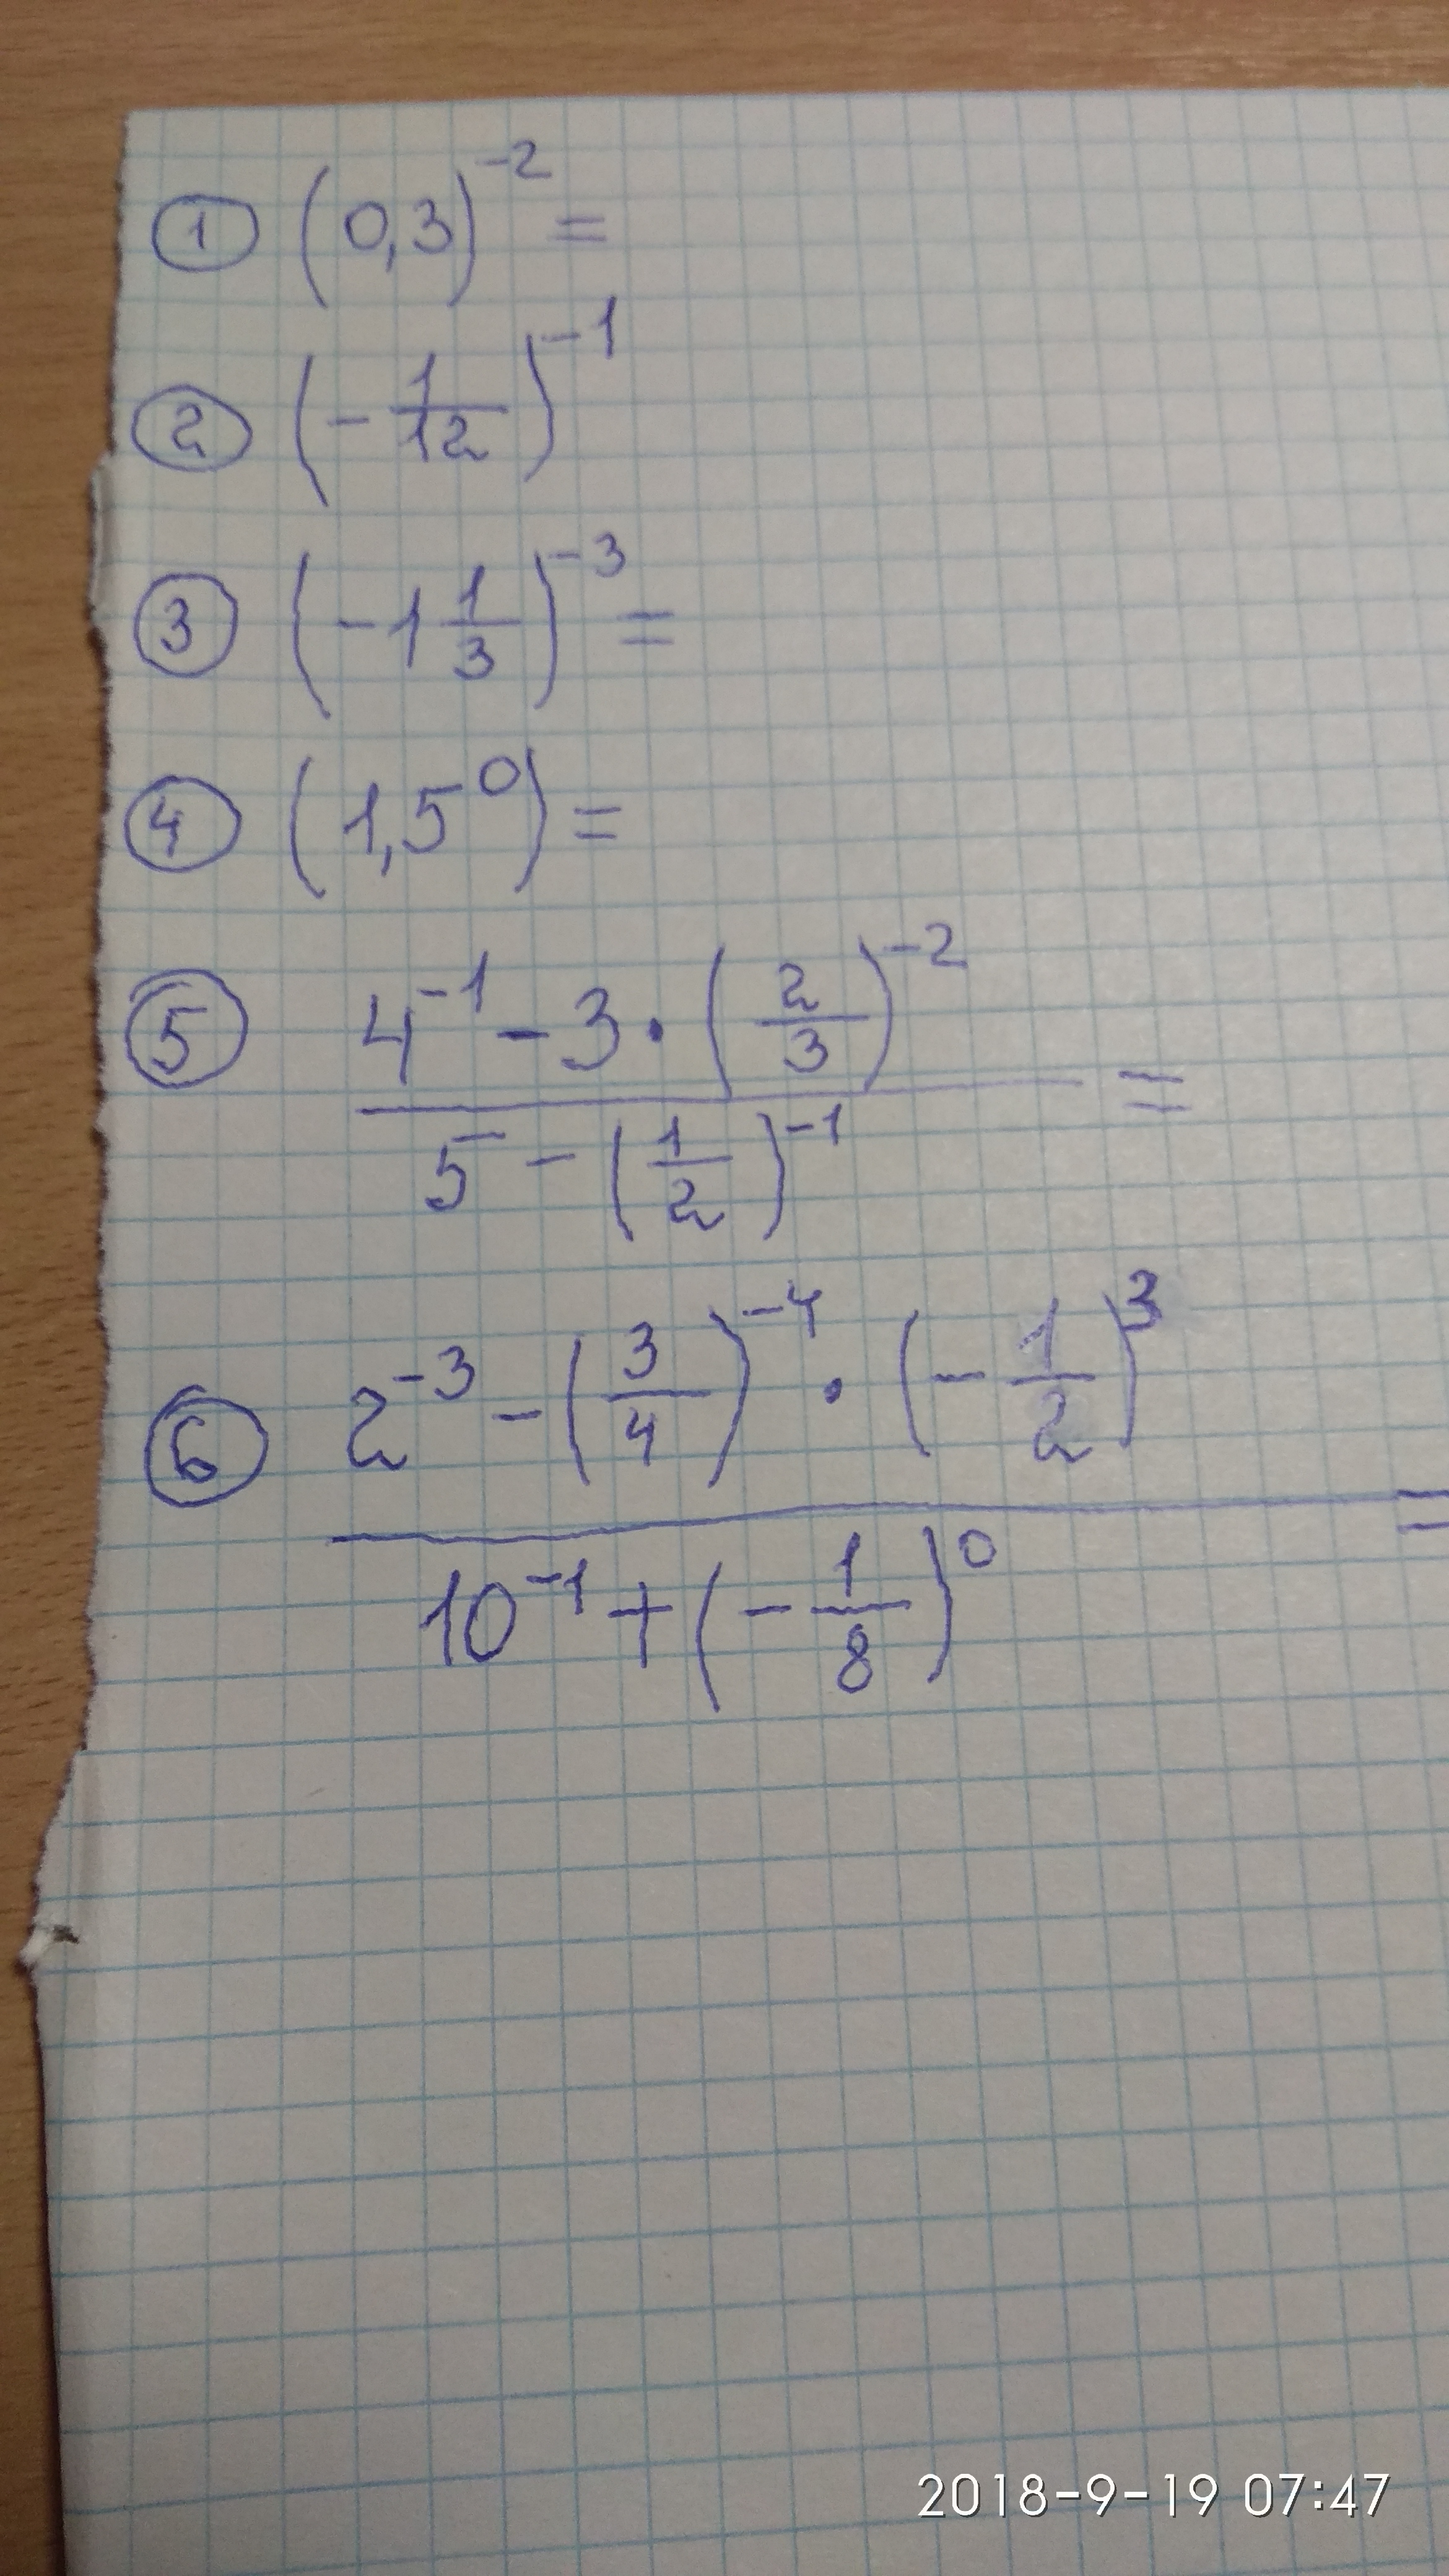 ① (0,3)^-2 =
② (-1/12)^-1
③ (-1 1/3)^-3 =
④ (1,5^0) =
⑤ (4^-1 - 3 · (2/3)^-2) / (5 - (1/2)^-1) =
⑥ (2^-3 - (3/4)^-4 · (-1/2)^3) / (10^-1 + (-1/8)^0) =
2018-9-19 07:47